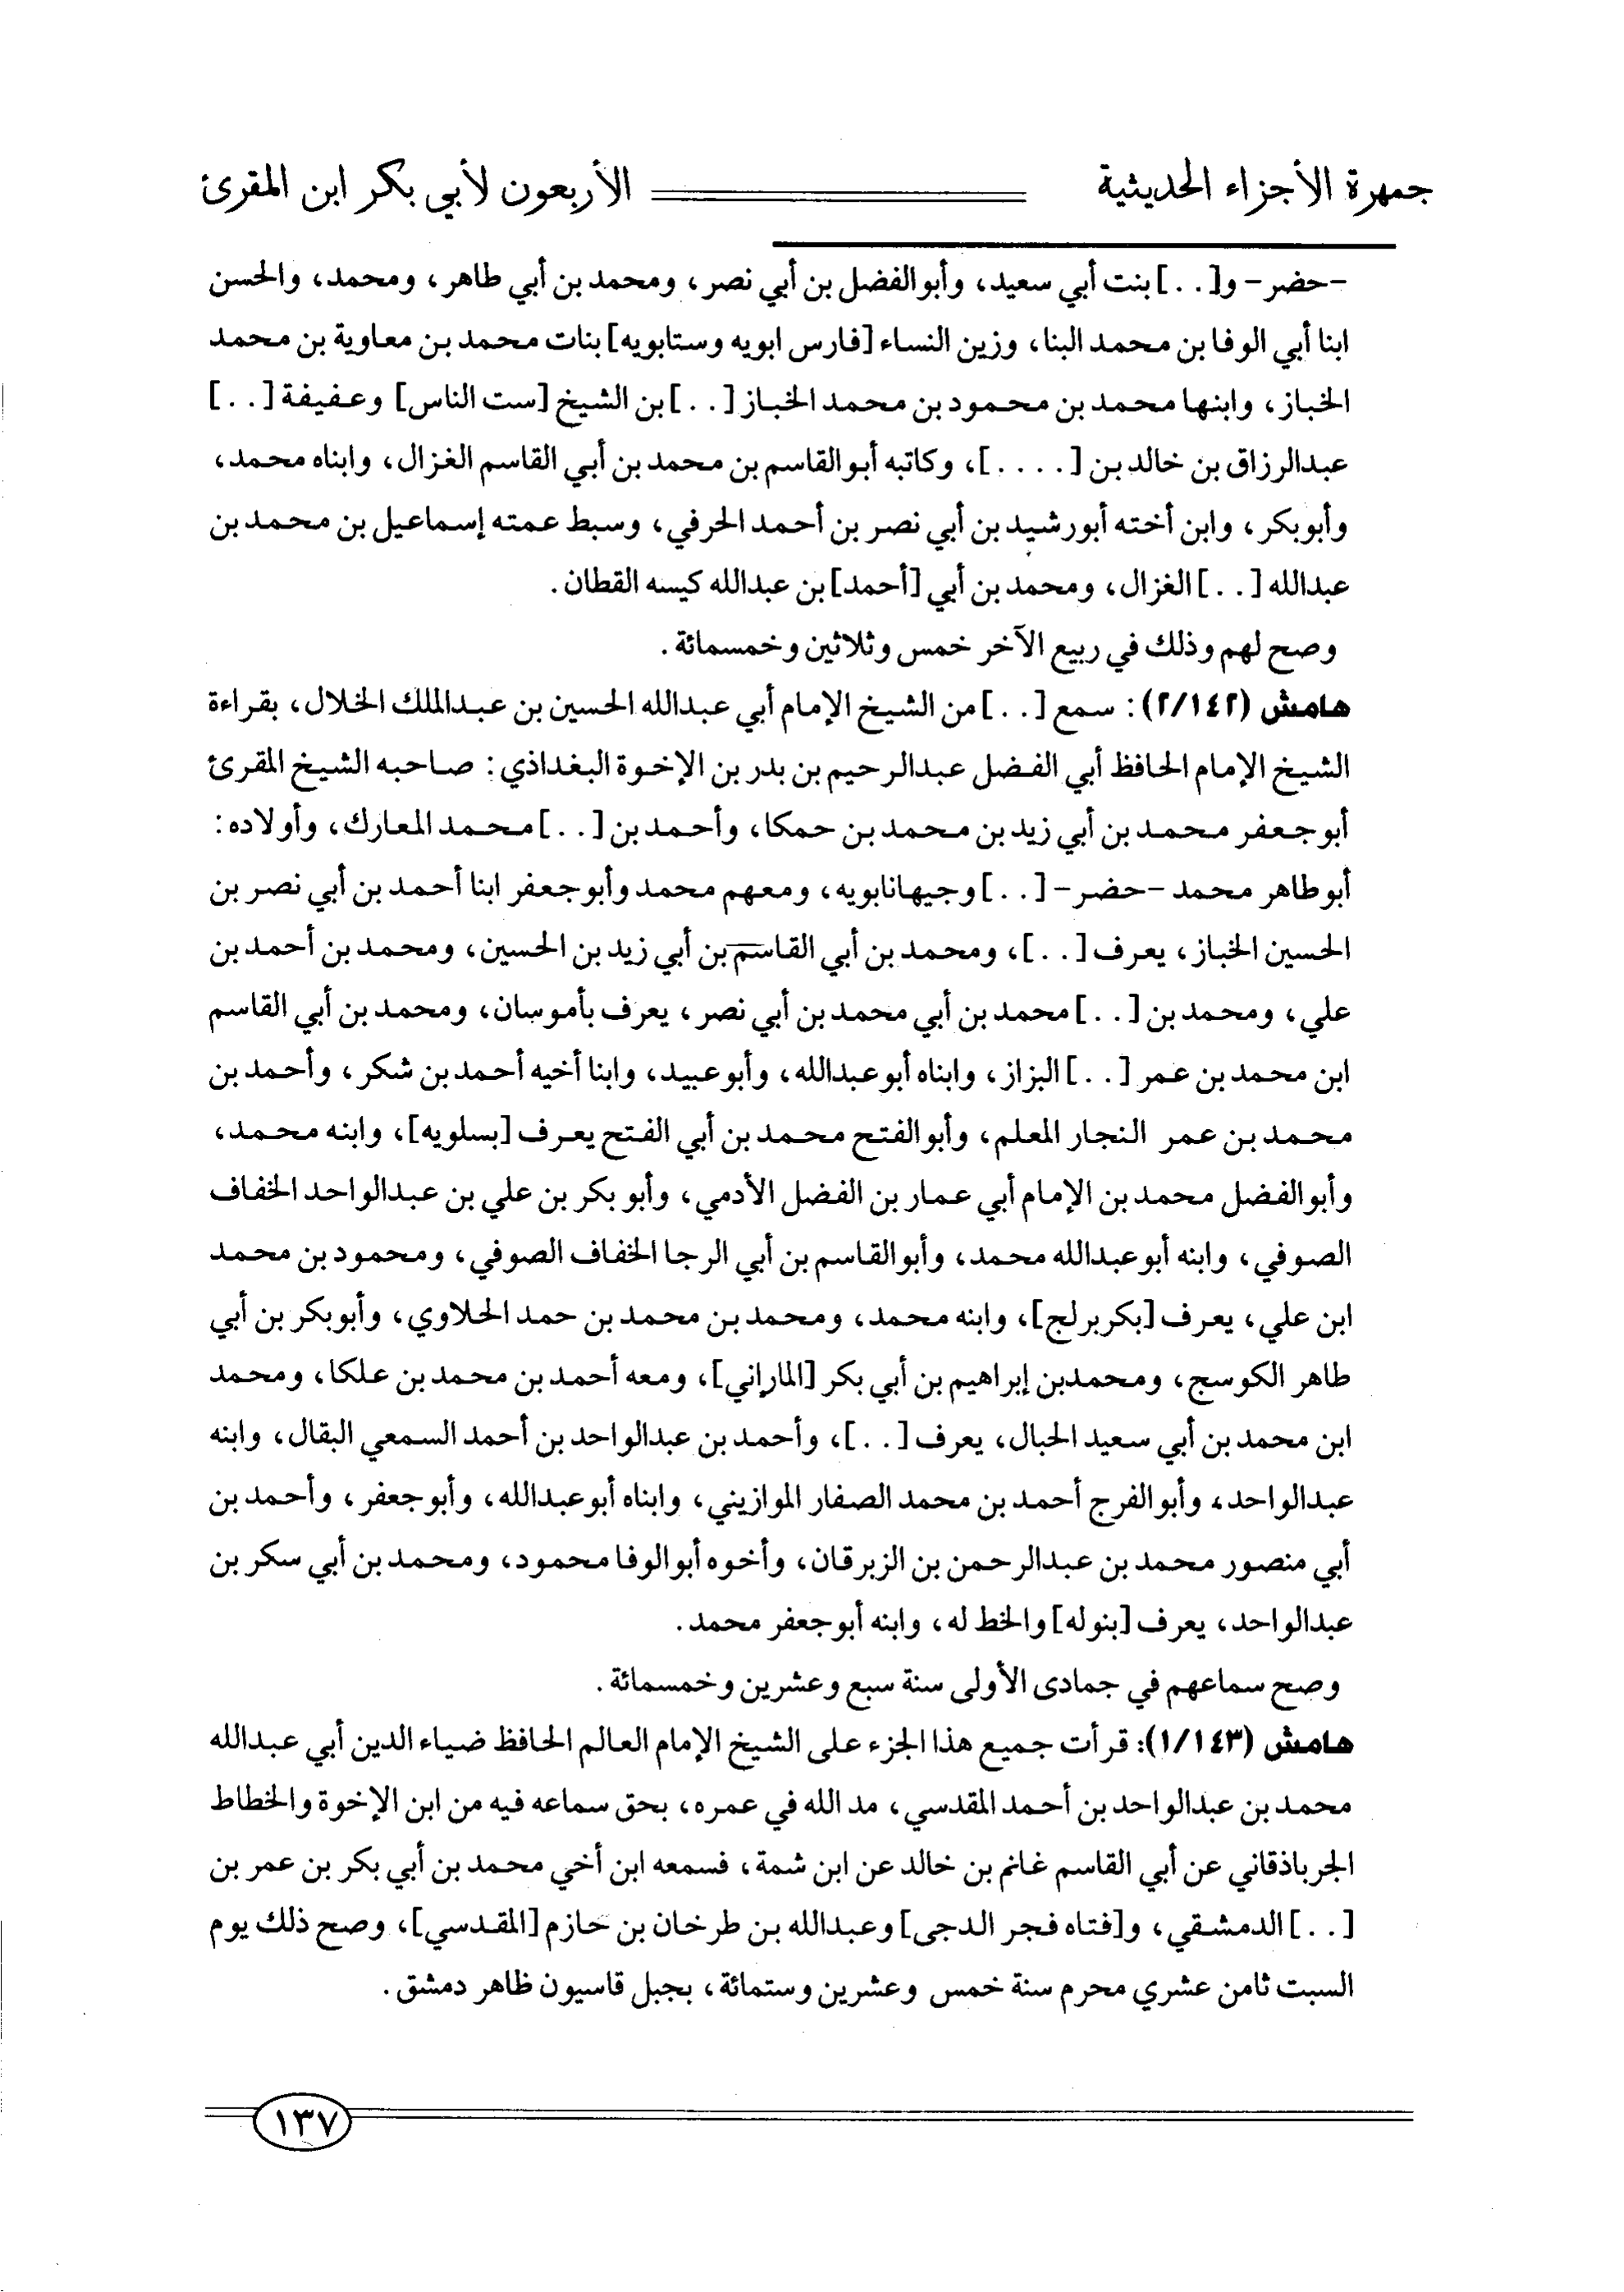 جمهرة الأجزاء الحديثية الأربعون لأبي بكر ابن المقرئ
-حضر- و[..] بنت أبي سعيد، وأبوالفضل بن أبي نصر، ومحمد بن أبي طاهر، ومحمد، والحسن
ابنا أبي الوفا بن محمد البنا، وزين النساء [فارس ابويه وستابويه] بنات محمد بن معاوية بن محمد
الخباز، وابنها محمد بن محمود بن محمد الخباز [..] بن الشيخ [ست الناس] وعفيفة [..]
عبدالرزاق بن خالد بن [....]، وكاتبه أبوالقاسم بن محمد بن أبي القاسم الغزال، وابناه محمد،
وأبوبكر، وابن أخته أبورشيد بن أبي نصر بن أحمد الحرفي، وسبط عمته إسماعيل بن محمد بن
عبدالله [..] الغزال، ومحمد بن أبي [أحمد] بن عبدالله كيسه القطان.
وصح لهم وذلك في ربيع الآخر خمس وثلاثين وخمسمائة.
هامش (٢/١٤٢): سمع [..] من الشيخ الإمام أبي عبدالله الحسين بن عبدالملك الخلال، بقراءة
الشيخ الإمام الحافظ أبي الفضل عبدالرحيم بن بدر بن الإخوة البغداذي: صاحبه الشيخ المقرئ
أبوجعفر محمد بن أبي زيد بن محمد بن حمكا، وأحمد بن [..] محمد المعارك، وأولاده:
أبوطاهر محمد -حضر- [..] وجيهانابويه، ومعهم محمد وأبوجعفر ابنا أحمد بن أبي نصر بن
الحسين الخباز، يعرف [..]، ومحمد بن أبي القاسم بن أبي زيد بن الحسين، ومحمد بن أحمد بن
علي، ومحمد بن [..] محمد بن أبي محمد بن أبي نصر، يعرف بأموسان، ومحمد بن أبي القاسم
ابن محمد بن عمر [..] البزاز، وابناه أبوعبدالله، وأبوعبيد، وابنا أخيه أحمد بن شكر، وأحمد بن
محمد بن عمر النجار المعلم، وأبوالفتح محمد بن أبي الفتح يعرف [بسلويه]، وابنه محمد،
وأبوالفضل محمد بن الإمام أبي عمار بن الفضل الأدمي، وأبو بكر بن علي بن عبدالواحد الخفاف
الصوفي، وابنه أبوعبدالله محمد، وأبوالقاسم بن أبي الرجا الخفاف الصوفي، ومحمود بن محمد
ابن علي، يعرف [بكربرلج]، وابنه محمد، ومحمد بن محمد بن حمد الحلاوي، وأبوبكر بن أبي
طاهر الكوسج، ومحمدبن إبراهيم بن أبي بكر [الماراني]، ومعه أحمد بن محمد بن علكا، ومحمد
ابن محمد بن أبي سعيد الحبال، يعرف [..]، وأحمد بن عبدالواحد بن أحمد السمعي البقال، وابنه
عبدالواحد، وأبوالفرج أحمد بن محمد الصفار الموازيني، وابناه أبوعبدالله، وأبوجعفر، وأحمد بن
أبي منصور محمد بن عبدالرحمن بن الزبرقان، وأخوه أبوالوفا محمود، ومحمد بن أبي سكر بن
عبدالواحد، يعرف [بنوله] والخط له، وابنه أبوجعفر محمد.
وصح سماعهم في جمادى الأولى سنة سبع وعشرين وخمسمائة.
هامش (١/١٤٣): قرأت جميع هذا الجزء على الشيخ الإمام العالم الحافظ ضياء الدين أبي عبدالله
محمد بن عبدالواحد بن أحمد المقدسي، مد الله في عمره، بحق سماعه فيه من ابن الإخوة والخطاط
الجرباذقاني عن أبي القاسم غانم بن خالد عن ابن شمة، فسمعه ابن أخي محمد بن أبي بكر بن عمر بن
[..] الدمشقي، و[فتاه فجر الدجى] وعبدالله بن طرخان بن حازم [المقدسي]، وصح ذلك يوم
السبت ثامن عشري محرم سنة خمس وعشرين وستمائة، بجبل قاسيون ظاهر دمشق.
١٣٧